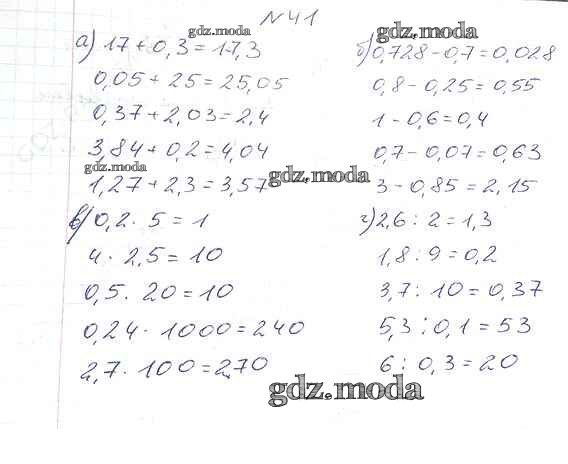 №41
gdz.moda gdz.moda
а) 17 + 0,3 = 17,3 б) 0,728 - 0,7 = 0,028
0,05 + 25 = 25,05 0,8 - 0,25 = 0,55
0,37 + 2,03 = 2,4 1 - 0,6 = 0,4
3,84 + 0,2 = 4,04 0,7 - 0,07 = 0,63
gdz.moda gdz.moda
1,27 + 2,3 = 3,57 3 - 0,85 = 2,15
в) 0,2 · 5 = 1 г) 2,6 : 2 = 1,3
4 · 2,5 = 10 1,8 : 9 = 0,2
0,5 · 20 = 10 3,7 : 10 = 0,37
0,24 · 1000 = 240 5,3 : 0,1 = 53
2,7 · 100 = 270 6 : 0,3 = 20
gdz.moda